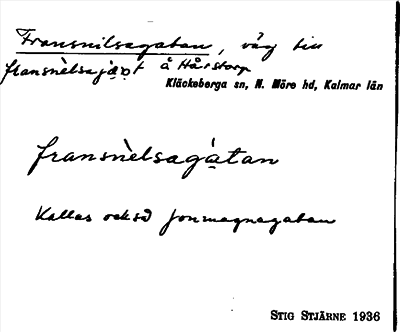 Fransnilsagatan, väg till
fransnèlsajạọt å Hårstorp
Kläckeberga sn, N. Möre hd, Kalmar län
fransnèlsagạ̀tan
Kallas också jonmagnagatan
STIG STJÄRNE 1936